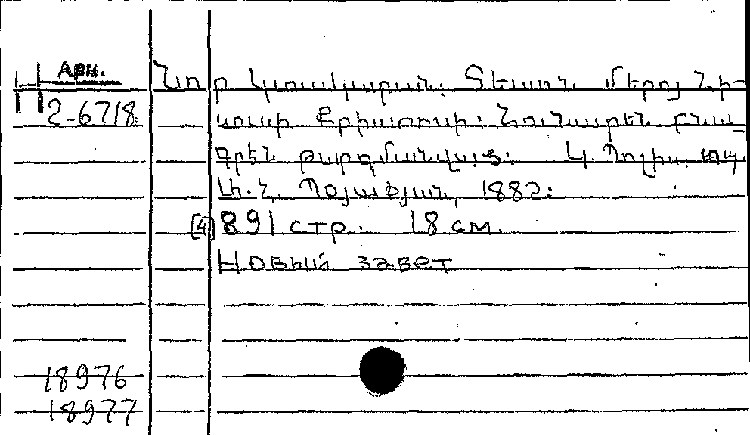 Арм.
2-6718
Նոր Կտակարան. Տեառն մերոյ Յի-
սուսի Քրիստոսի: Յունարէն բնա-
գրէն թարգմանված: Կ. Պոլիս, տպ.
Պօյաճյան, 1882:
[4] 891 стр. 18 см.
Новый завет
18976
18977